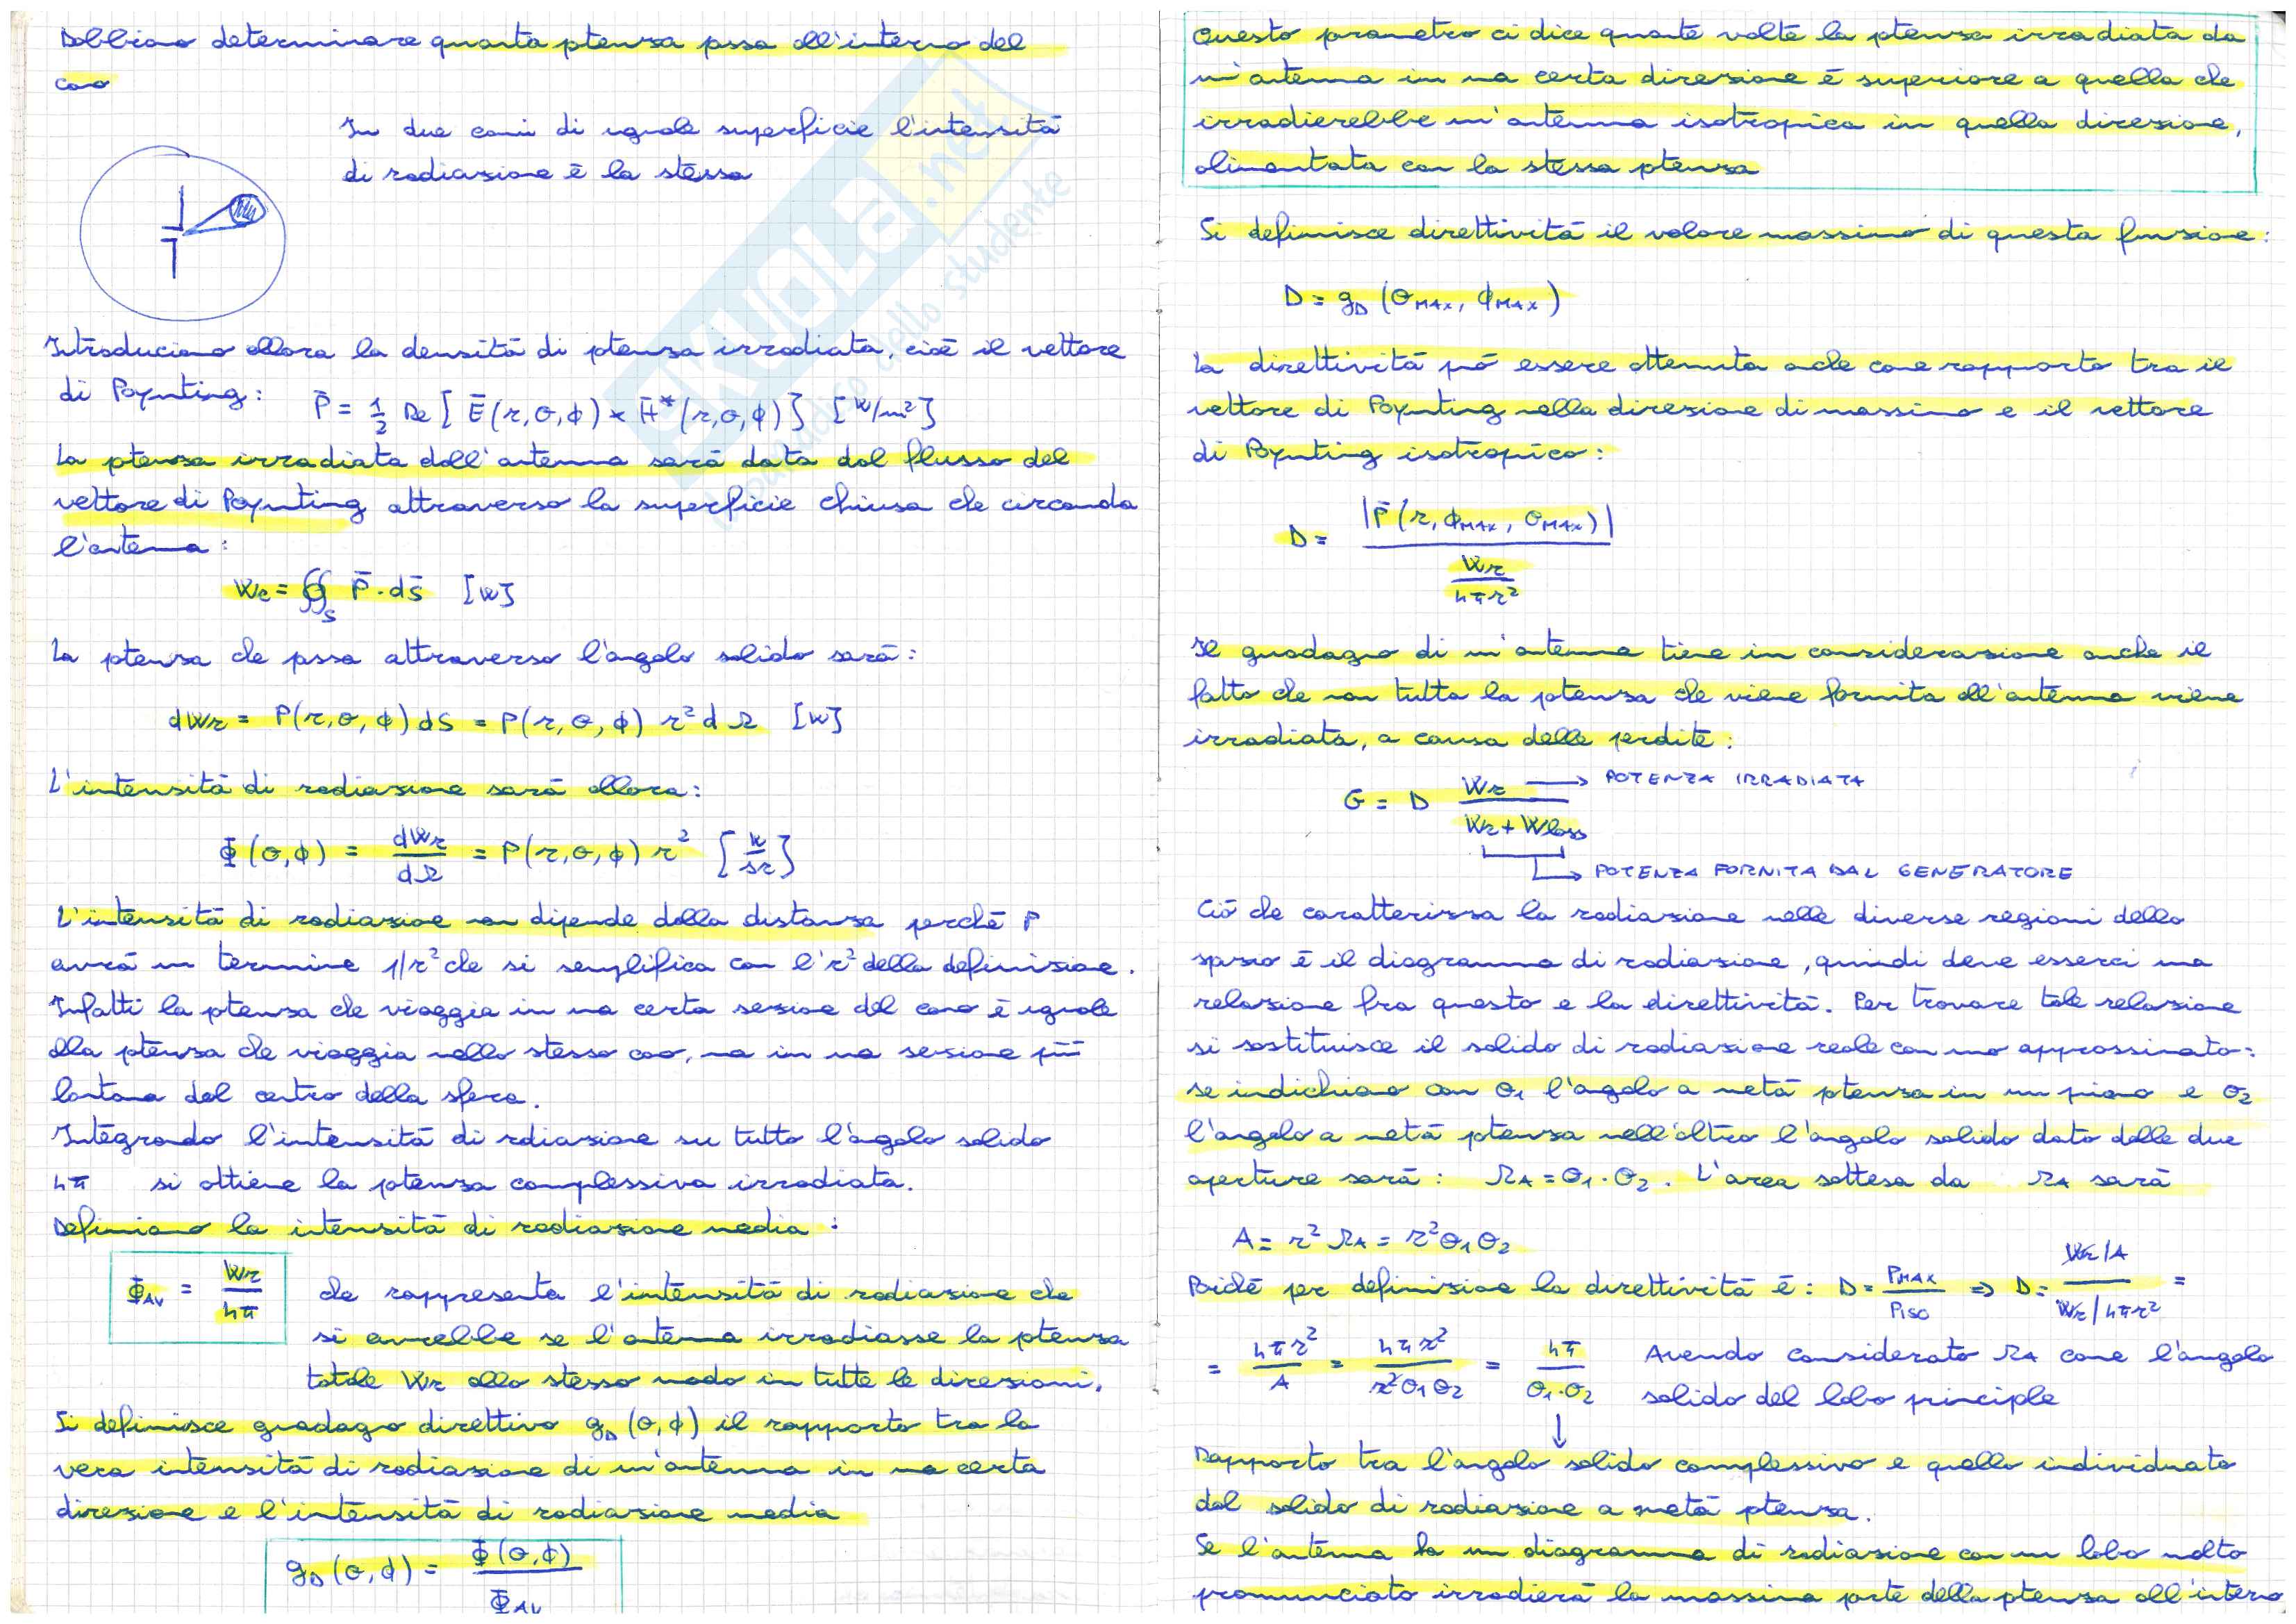 Dobbiamo determinare quanta potenza passa all'interno del
cono
In due coni di uguale superficie l'intensità
di radiazione è la stessa
Introduciamo allora la densità di potenza irradiata, cioè il vettore
di Poynting: P̄ = 1/2 Re [ Ē(r,θ,ϕ) × H̄*(r,θ,ϕ)] [W/m²]
La potenza irradiata dall'antenna sarà data dal flusso del
vettore di Poynting attraverso la superficie chiusa che circonda
l'antenna:
Wr = ∯s P̄ · dS̄ [W]
La potenza che passa attraverso l'angolo solido sarà:
dWr = P(r,θ,ϕ) dS = P(r,θ,ϕ) r² dΩ [W]
L'intensità di radiazione sarà allora:
Φ(θ,ϕ) = dWr/dΩ = P(r,θ,ϕ) r² [W/sr]
L'intensità di radiazione non dipende dalla distanza perché P
avrà un termine 1/r² che si semplifica con l'r² della definizione.
Infatti la potenza che viaggia in una certa sezione del cono è uguale
alla potenza che viaggia nello stesso cono, ma in una sezione più
lontana dal centro della sfera.
Integrando l'intensità di radiazione su tutto l'angolo solido
4π si ottiene la potenza complessiva irradiata.
Definiamo la intensità di radiazione media:
Φ_AV = Wr/4π che rappresenta l'intensità di radiazione che
si avrebbe se l'antenna irradiasse la potenza
totale Wr allo stesso modo in tutte le direzioni.
Si definisce guadagno direttivo g_D (θ,ϕ) il rapporto tra la
vera intensità di radiazione di un'antenna in una certa
direzione e l'intensità di radiazione media
g_D (θ,ϕ) = Φ(θ,ϕ)/Φ_AV
Questo parametro ci dice quante volte la potenza irradiata da
un'antenna in una certa direzione è superiore a quella che
irradierebbe un'antenna isotropica in quella direzione,
alimentata con la stessa potenza
Si definisce direttività il valore massimo di questa funzione:
D = g_D (θ_MAX, ϕ_MAX)
La direttività può essere ottenuta anche come rapporto tra il
vettore di Poynting nella direzione di massimo e il vettore
di Poynting isotropico:
D = |P̄(r, ϕ_MAX, θ_MAX)| / (Wr/4πr²)
Il guadagno di un'antenna tiene in considerazione anche il
fatto che non tutta la potenza che viene fornita all'antenna viene
irradiata, a causa delle perdite:
G = D Wr/(Wr + Wloss) → POTENZA IRRADIATA
→ POTENZA FORNITA DAL GENERATORE
Ciò che caratterizza la radiazione nelle diverse regioni dello
spazio è il diagramma di radiazione, quindi deve esserci una
relazione fra questo e la direttività. Per trovare tale relazione
si sostituisce il solido di radiazione reale con uno approssimato:
se indichiamo con θ₁ l'angolo a metà potenza in un piano e θ₂
l'angolo a metà potenza nell'altro l'angolo solido dato dalle due
aperture sarà: Ω_A = θ₁·θ₂. L'area sottesa da Ω_A sarà
A = r² Ω_A = r²θ₁θ₂
Poiché per definizione la direttività è: D = P_MAX/P_ISO ⇒ D = (Wr/A)/(Wr/4πr²) =
= 4πr²/A = 4πr²/r²θ₁θ₂ = 4π/θ₁·θ₂ Avendo considerato Ω_A come l'angolo
solido del lobo principle
↓
Rapporto tra l'angolo solido complessivo e quello individuato
dal solido di radiazione a metà potenza.
Se l'antenna ha un diagramma di radiazione con un lobo molto
pronunciato irradierà la massima parte della potenza all'interno
SKUOLA.net
il paradiso dello studente